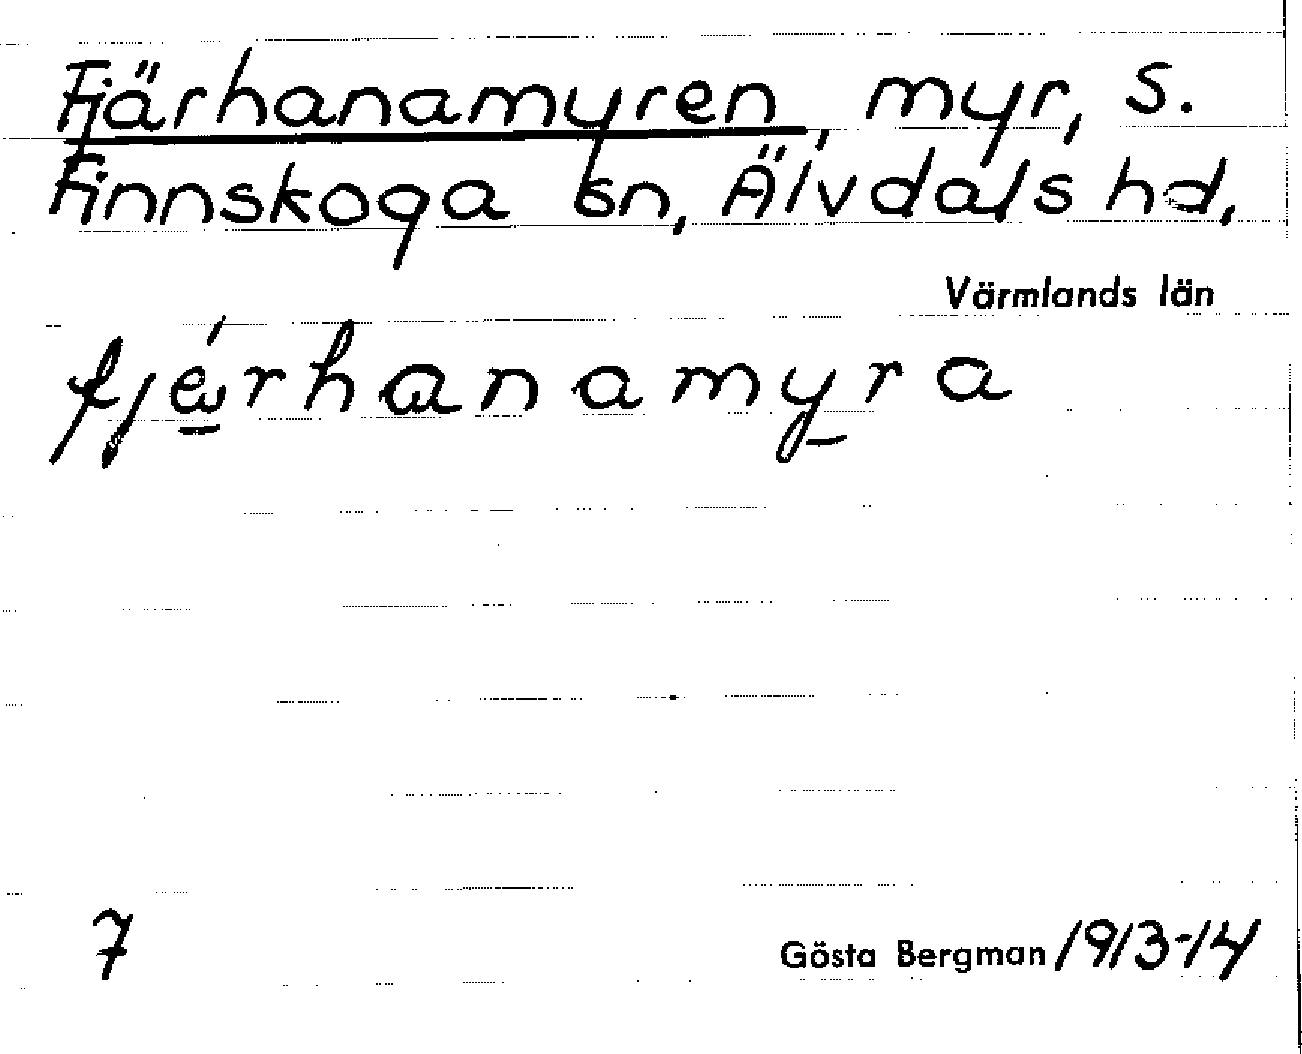 Fjärhanamyren, myr, S.
Finnskoga sn, Älvdals hd,
Värmlands län
fjérhanamyra
7
Gösta Bergman 1913-14